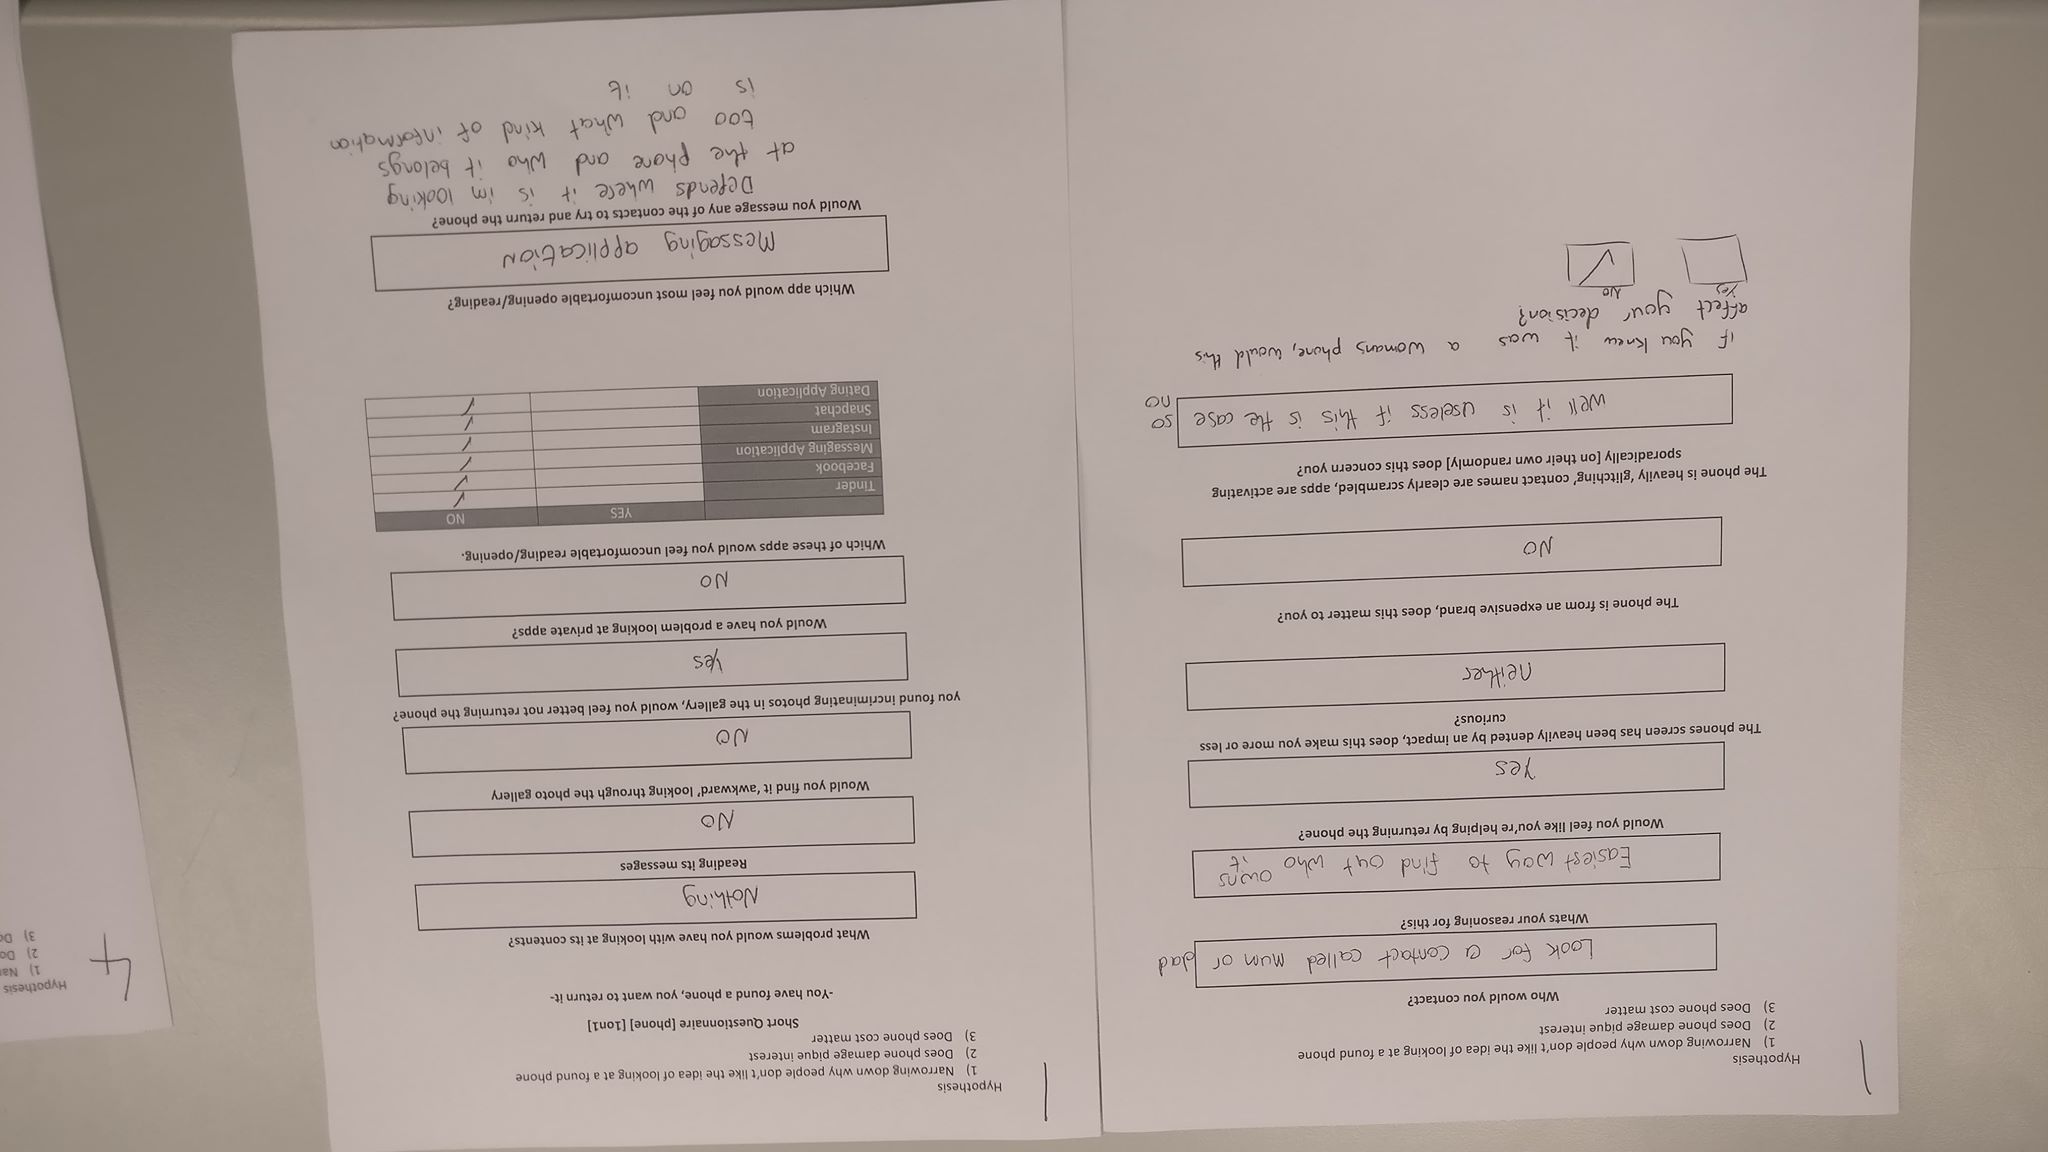 1
Hypothesis
1) Narrowing down why people don't like the idea of looking at a found phone
2) Does phone damage pique interest
3) Does phone cost matter
Who would you contact?
Look for a contact called mum or dad
Whats your reasoning for this?
Easiest way to find out who owns
it
Would you feel like you're helping by returning the phone?
Yes
The phones screen has been heavily dented by an impact, does this make you more or less
curious?
neither
The phone is from an expensive brand, does this matter to you?
NO
The phone is heavily 'glitching' contact names are clearly scrambled, apps are activating
sporadically [on their own randomly] does this concern you?
well it is useless if this is the case so
no
if you knew it was a womans phone, would this
affect your decision?
Yes No
✓
1
Hypothesis
1) Narrowing down why people don't like the idea of looking at a found phone
2) Does phone damage pique interest
3) Does phone cost matter
Short Questionnaire [phone] [1on1]
-You have found a phone, you want to return it-
What problems would you have with looking at its contents?
Nothing
Reading its messages
NO
Would you find it 'awkward' looking through the photo gallery
NO
you found incriminating photos in the gallery, would you feel better not returning the phone?
Yes
Would you have a problem looking at private apps?
NO
Which of these apps would you feel uncomfortable reading/opening.
YES NO
Tinder ✓
Facebook ✓
Messaging Application ✓
Instagram ✓
Snapchat ✓
Dating Application ✓
Which app would you feel most uncomfortable opening/reading?
Messaging application
Would you message any of the contacts to try and return the phone?
Depends where it is im looking
at the phone and who it belongs
too and what kind of information
is on it
4
Hypothesis
1)
2)
3)